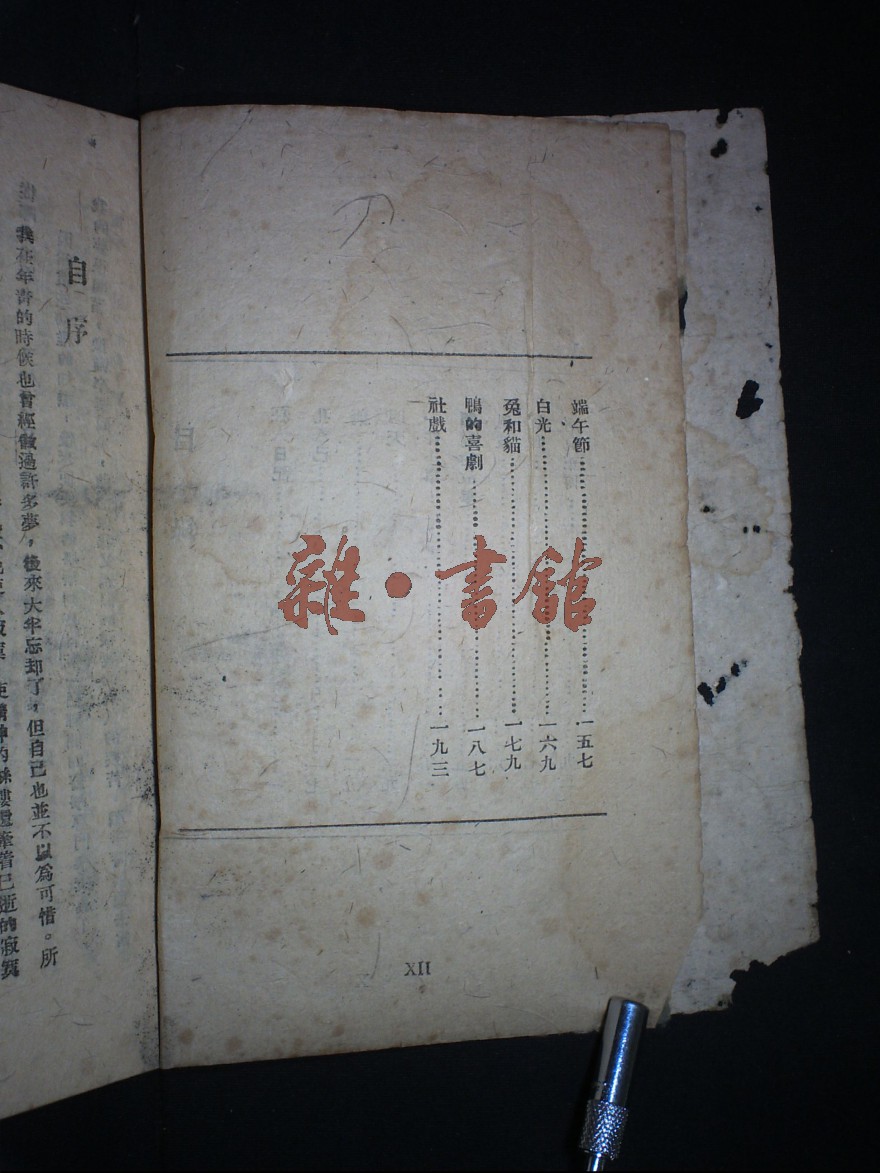 端午節……一五七
白光……一六九
兔和貓……一七九
鴨的喜劇……一八七
社戲……一九三
XII
自序
我在年青的時候也曾經做過許多夢，後來大半忘却了，但自己也並不以爲可惜。所
精神的絲縷還牽着已逝的寂寞
雜·書館